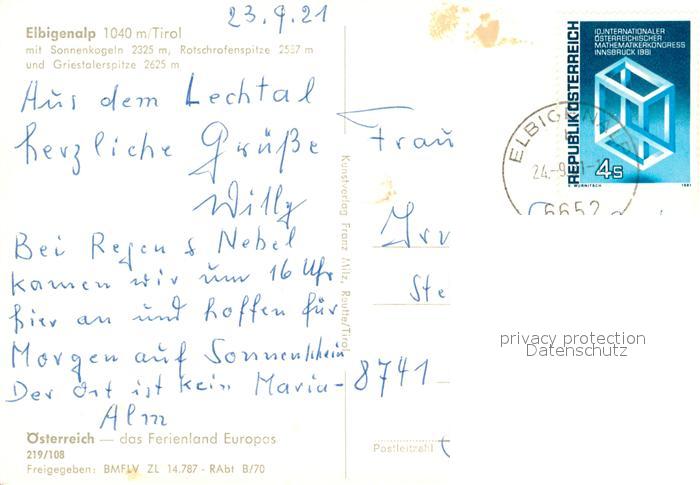 23.9.81
Elbigenalp 1040 m/Tirol
mit Sonnenkogeln 2325 m, Rotschrofenspitze 2587 m
und Griestalerspitze 2625 m
Aus dem Lechtal
herzliche Grüße
Willy
Bei Regen & Nebel
kamen wir um 16 Uhr
hier an und hoffen für
Morgen auf Sonnenschein
Der Ort ist kein Maria-
Alm
Österreich — das Ferienland Europas
219/108
Freigegeben: BMFLV ZL 14.787 - RAbt B/70
Kunstverlag Franz Milz, Reutte/Tirol
Frau
Irv
Ste
8741
Postleitzahl
REPUBLIK ÖSTERREICH
10.INTERNATIONALER
ÖSTERREICHISCHER
MATHEMATIKERKONGRESS
INNSBRUCK 1981
4S
1981
ELBIGENALP
24.-9.
6652
privacy protection
Datenschutz